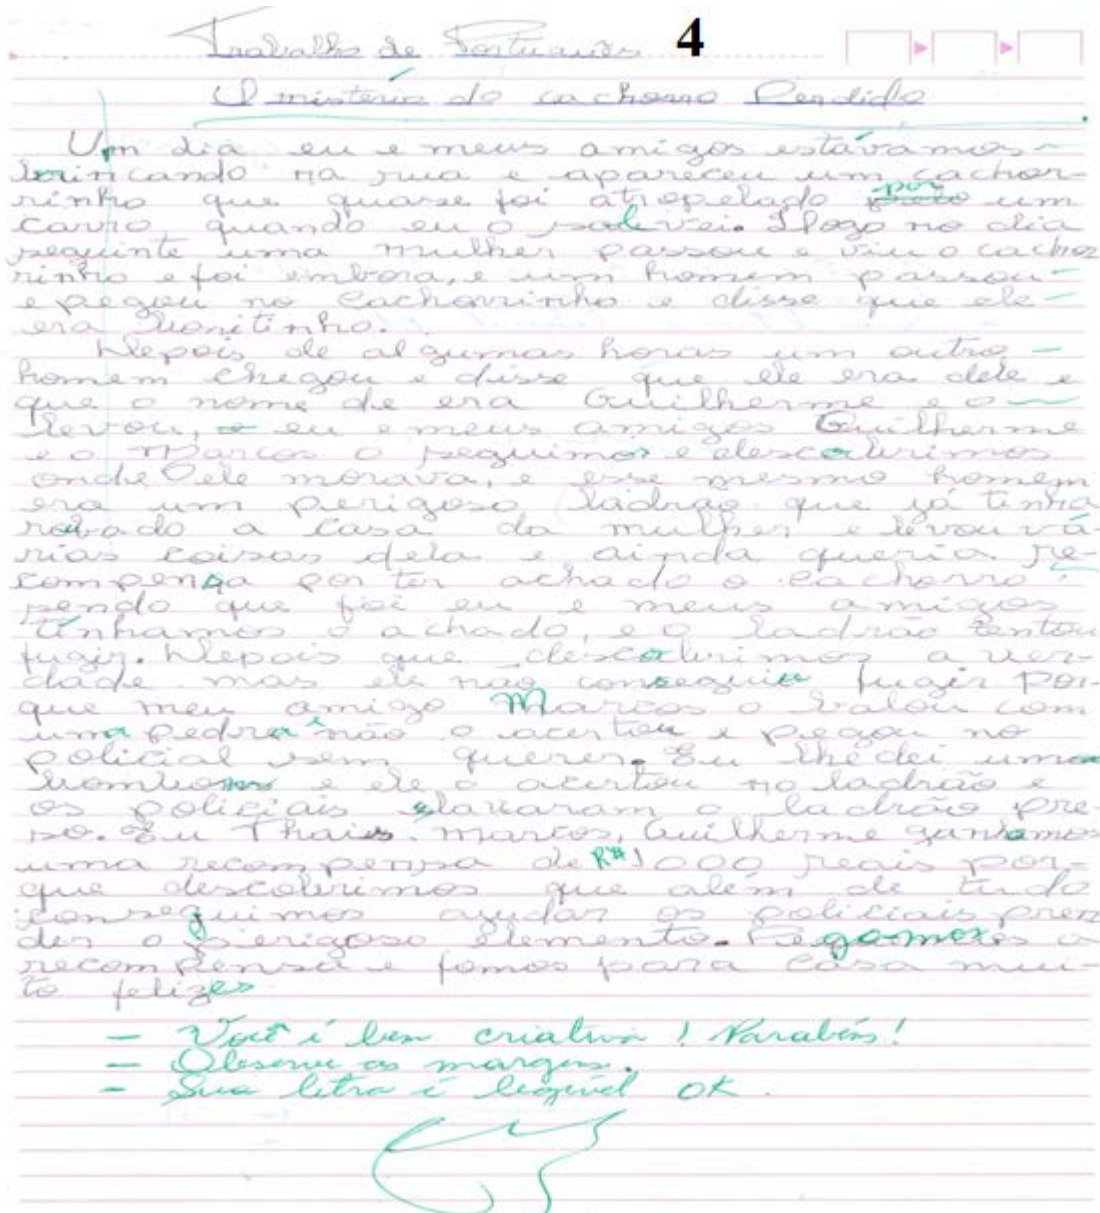 Trabalho de Português 4
O mistério do cachorro Perdido
Um dia eu e meus amigos estávamos
brincando na rua e apareceu um cachor-
rinho que quase foi atropelado por um
carro, quando eu o salvei. Logo no dia
seguinte uma mulher passou e viu o cachor
rinho e foi embora, e um homem passou
e pegou no cachorrinho e disse que ele
era bonitinho.
Depois de algumas horas um outro
homem chegou e disse que ele era dele e
que o nome de era Guilherme e o
levou, e eu e meus amigos Guilherme
e o Marcos o seguimos e descobrimos
onde ele morava, e esse mesmo homem
era um perigoso ladrão que já tinha
roubado a casa da mulher e levou vá-
rias coisas dela e ainda queria re-
compensa por ter achado o cachorro
sendo que foi eu e meus amigos
tínhamos o achado, e o ladrão tentou
fugir. Depois que descobrimos a ver-
dade mas ele não conseguiu fugir Por-
que meu amigo Marcos o com
uma pedra não o acertou e pegou no
policial sem querer. Eu lhe dei uma
e ele o acertou no ladrão e
os policiais o ladrão pre-
so. Eu Thais, Marcos, Guilherme ganhamos
uma recompensa de R$ 1000 reais por-
que descobrimos que além de tudo
conseguimos ajudar os policiais pren
der o perigoso elemento. Pegamos a
recompensa e fomos para casa mui-
to felizes
- Você é bem criativa! Parabéns!
- Observe as margens.
- Sua letra é legível OK.